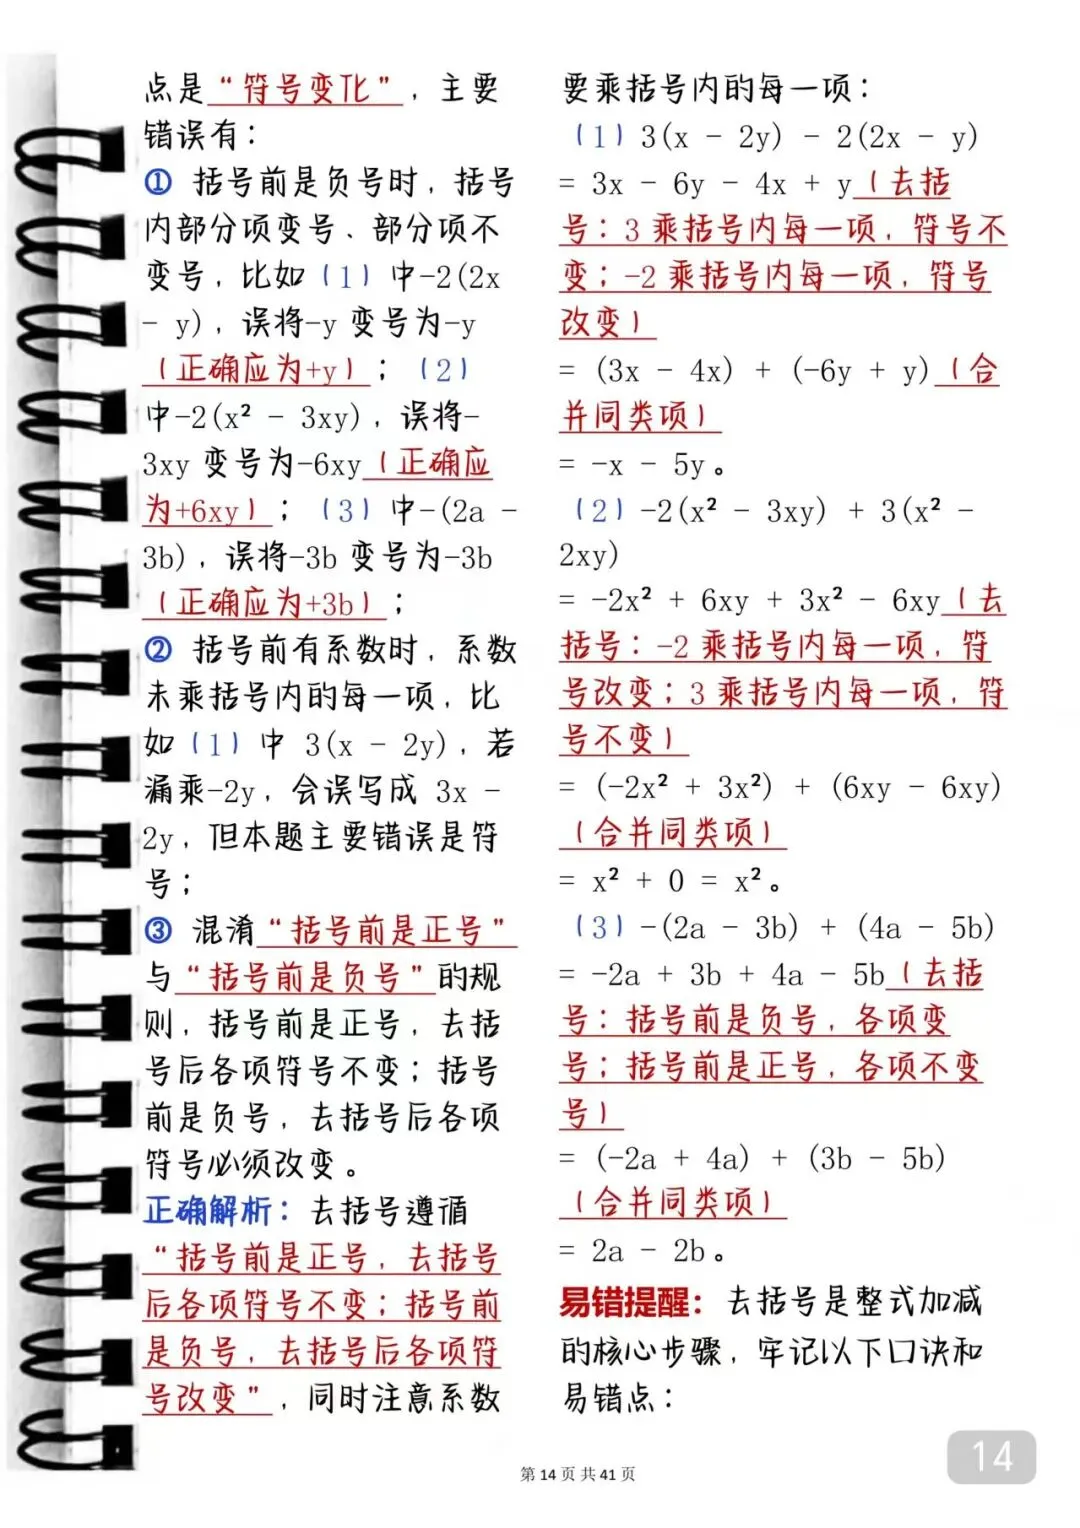 点是“符号变化”，主要
错误有：
① 括号前是负号时，括号
内部分项变号、部分项不
变号，比如（1）中-2(2x
- y)，误将-y 变号为-y
（正确应为+y）；（2）
中-2(x² - 3xy)，误将-
3xy 变号为-6xy（正确应
为+6xy）；（3）中-(2a -
3b)，误将-3b 变号为-3b
（正确应为+3b）；
② 括号前有系数时，系数
未乘括号内的每一项，比
如（1）中 3(x - 2y)，若
漏乘-2y，会误写成 3x -
2y，但本题主要错误是符
号；
③ 混淆“括号前是正号”
与“括号前是负号”的规
则，括号前是正号，去括
号后各项符号不变；括号
前是负号，去括号后各项
符号必须改变。
正确解析：去括号遵循
“括号前是正号，去括号
后各项符号不变；括号前
是负号，去括号后各项符
号改变”，同时注意系数
要乘括号内的每一项：
（1）3(x - 2y) - 2(2x - y)
= 3x - 6y - 4x + y（去括
号：3 乘括号内每一项，符号不
变；-2 乘括号内每一项，符号
改变）
= (3x - 4x) + (-6y + y)（合
并同类项）
= -x - 5y。
（2）-2(x² - 3xy) + 3(x² -
2xy)
= -2x² + 6xy + 3x² - 6xy（去
括号：-2 乘括号内每一项，符
号改变；3 乘括号内每一项，符
号不变）
= (-2x² + 3x²) + (6xy - 6xy)
（合并同类项）
= x² + 0 = x²。
（3）-(2a - 3b) + (4a - 5b)
= -2a + 3b + 4a - 5b（去括
号：括号前是负号，各项变
号；括号前是正号，各项不变
号）
= (-2a + 4a) + (3b - 5b)
（合并同类项）
= 2a - 2b。
易错提醒：去括号是整式加减
的核心步骤，牢记以下口诀和
易错点：
第 14 页 共 41 页
14